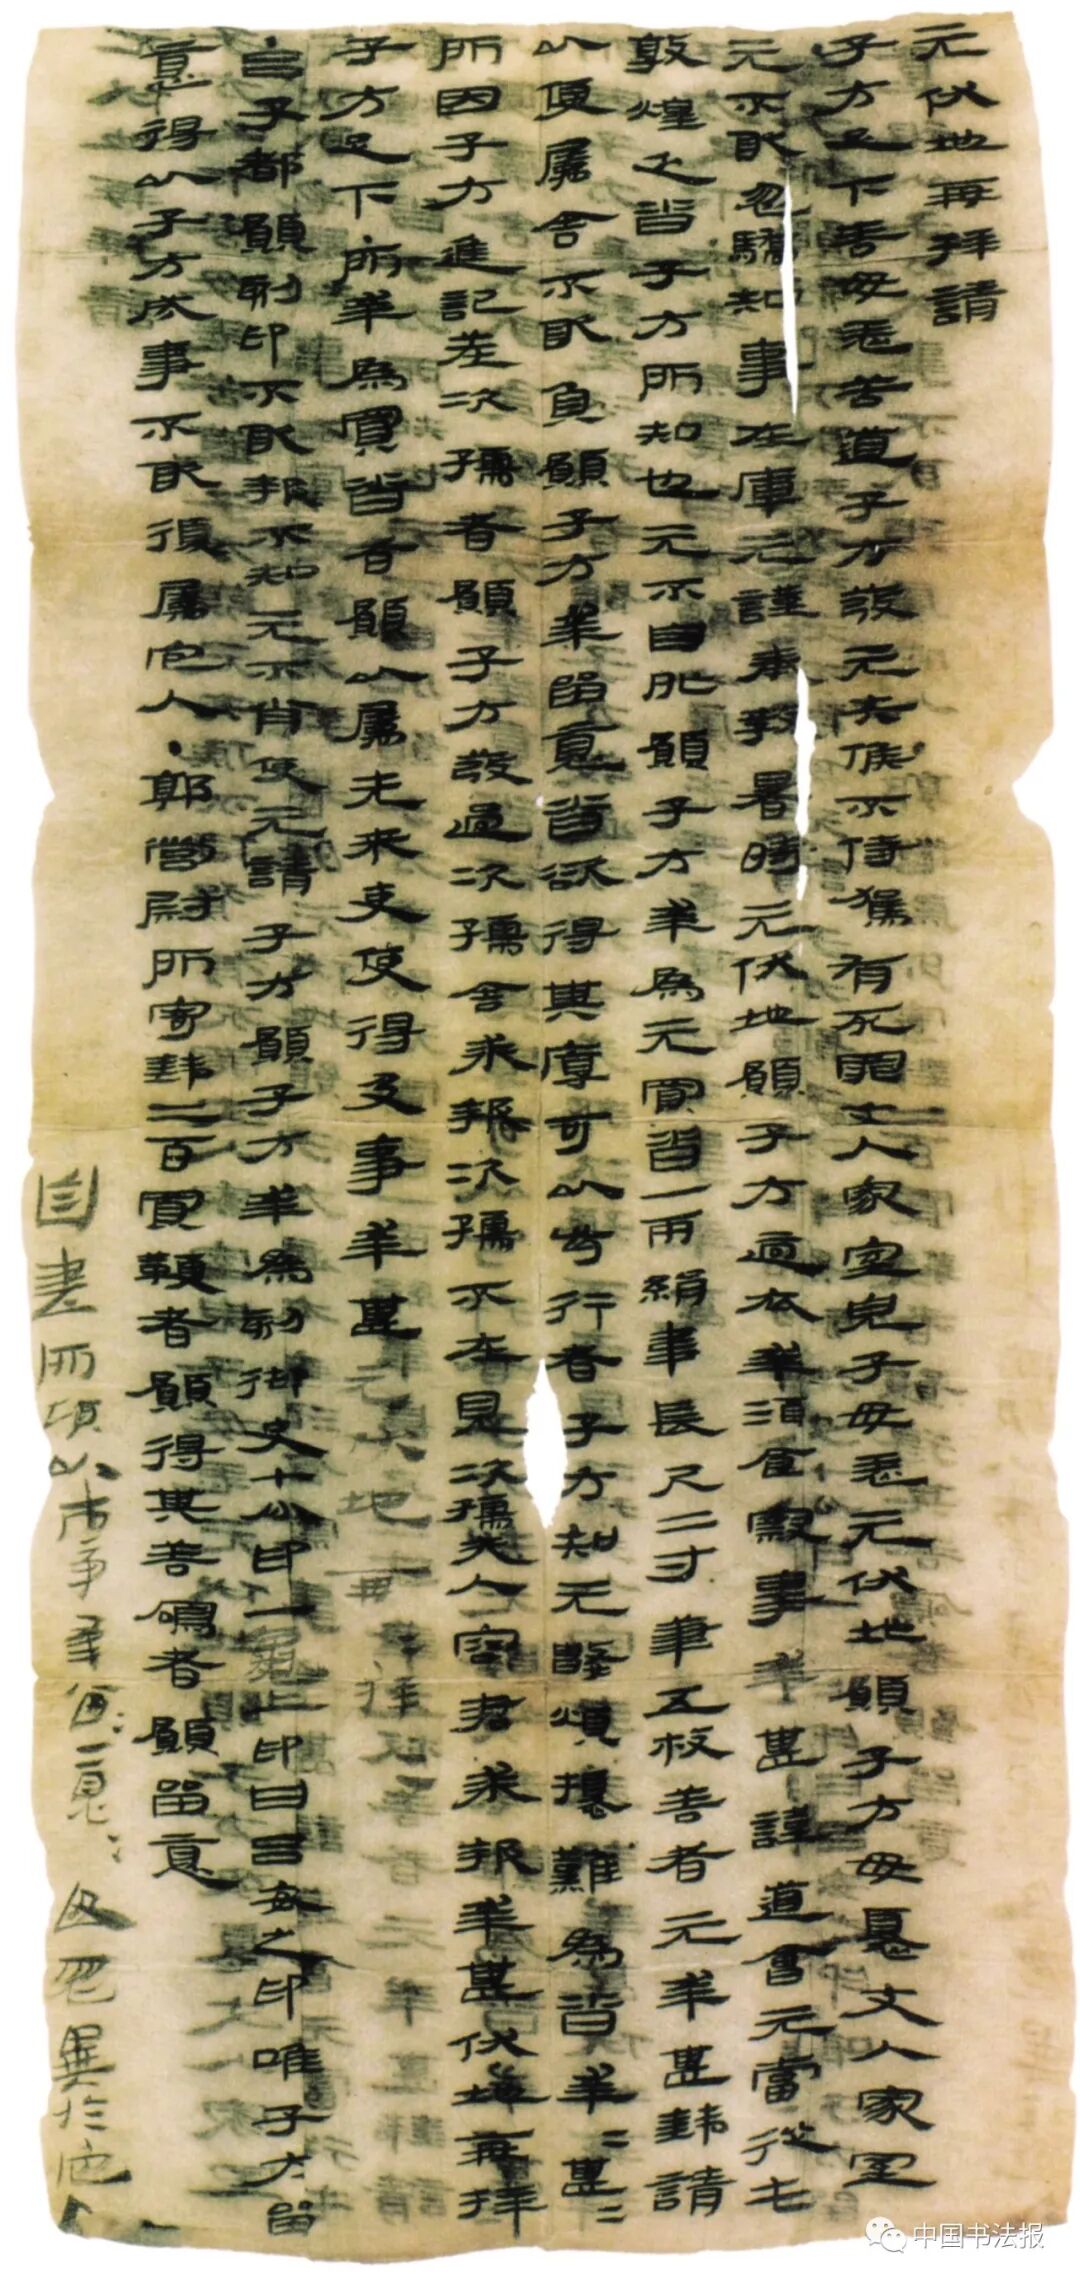 元伏地再拜請
子方足下善毋恙苦道子方發元失候不侍駕有死罪丈人家室兒子毋恙元伏地願子方毋憂丈人家室
元不敢忽驕知事在庫元謹奉教暑時元伏地願子方適衣幸酒食察事幸甚謹道會元當從屯
敦煌乏沓子方所知也元不自外願子方幸為元買沓一兩絹韋長尺二寸筆五枚善者元幸甚錢請
以便屬舍不敢負願子方幸留意沓欲得其厚可以步行者子方知元數煩擾難為沓幸=甚=
所因子方進記差次孺者願子方發過次孺舍求報次孺不在見次孺夫人容君求報幸甚伏地再拜
子方足下所幸為買沓者願以屬先來吏使得及事幸甚元伏地再拜
·自子都願刻印不敢報不知元不肖使元請子方願子方幸為刻御史七分印一龜上印曰呂安之印唯子方留
意得以子方成事不敢復屬它人·郭營尉所寄錢二百買鞭者願得其善鳴者願留意
自書所願以市事幸留意=毋忽異於它人
中国书法报